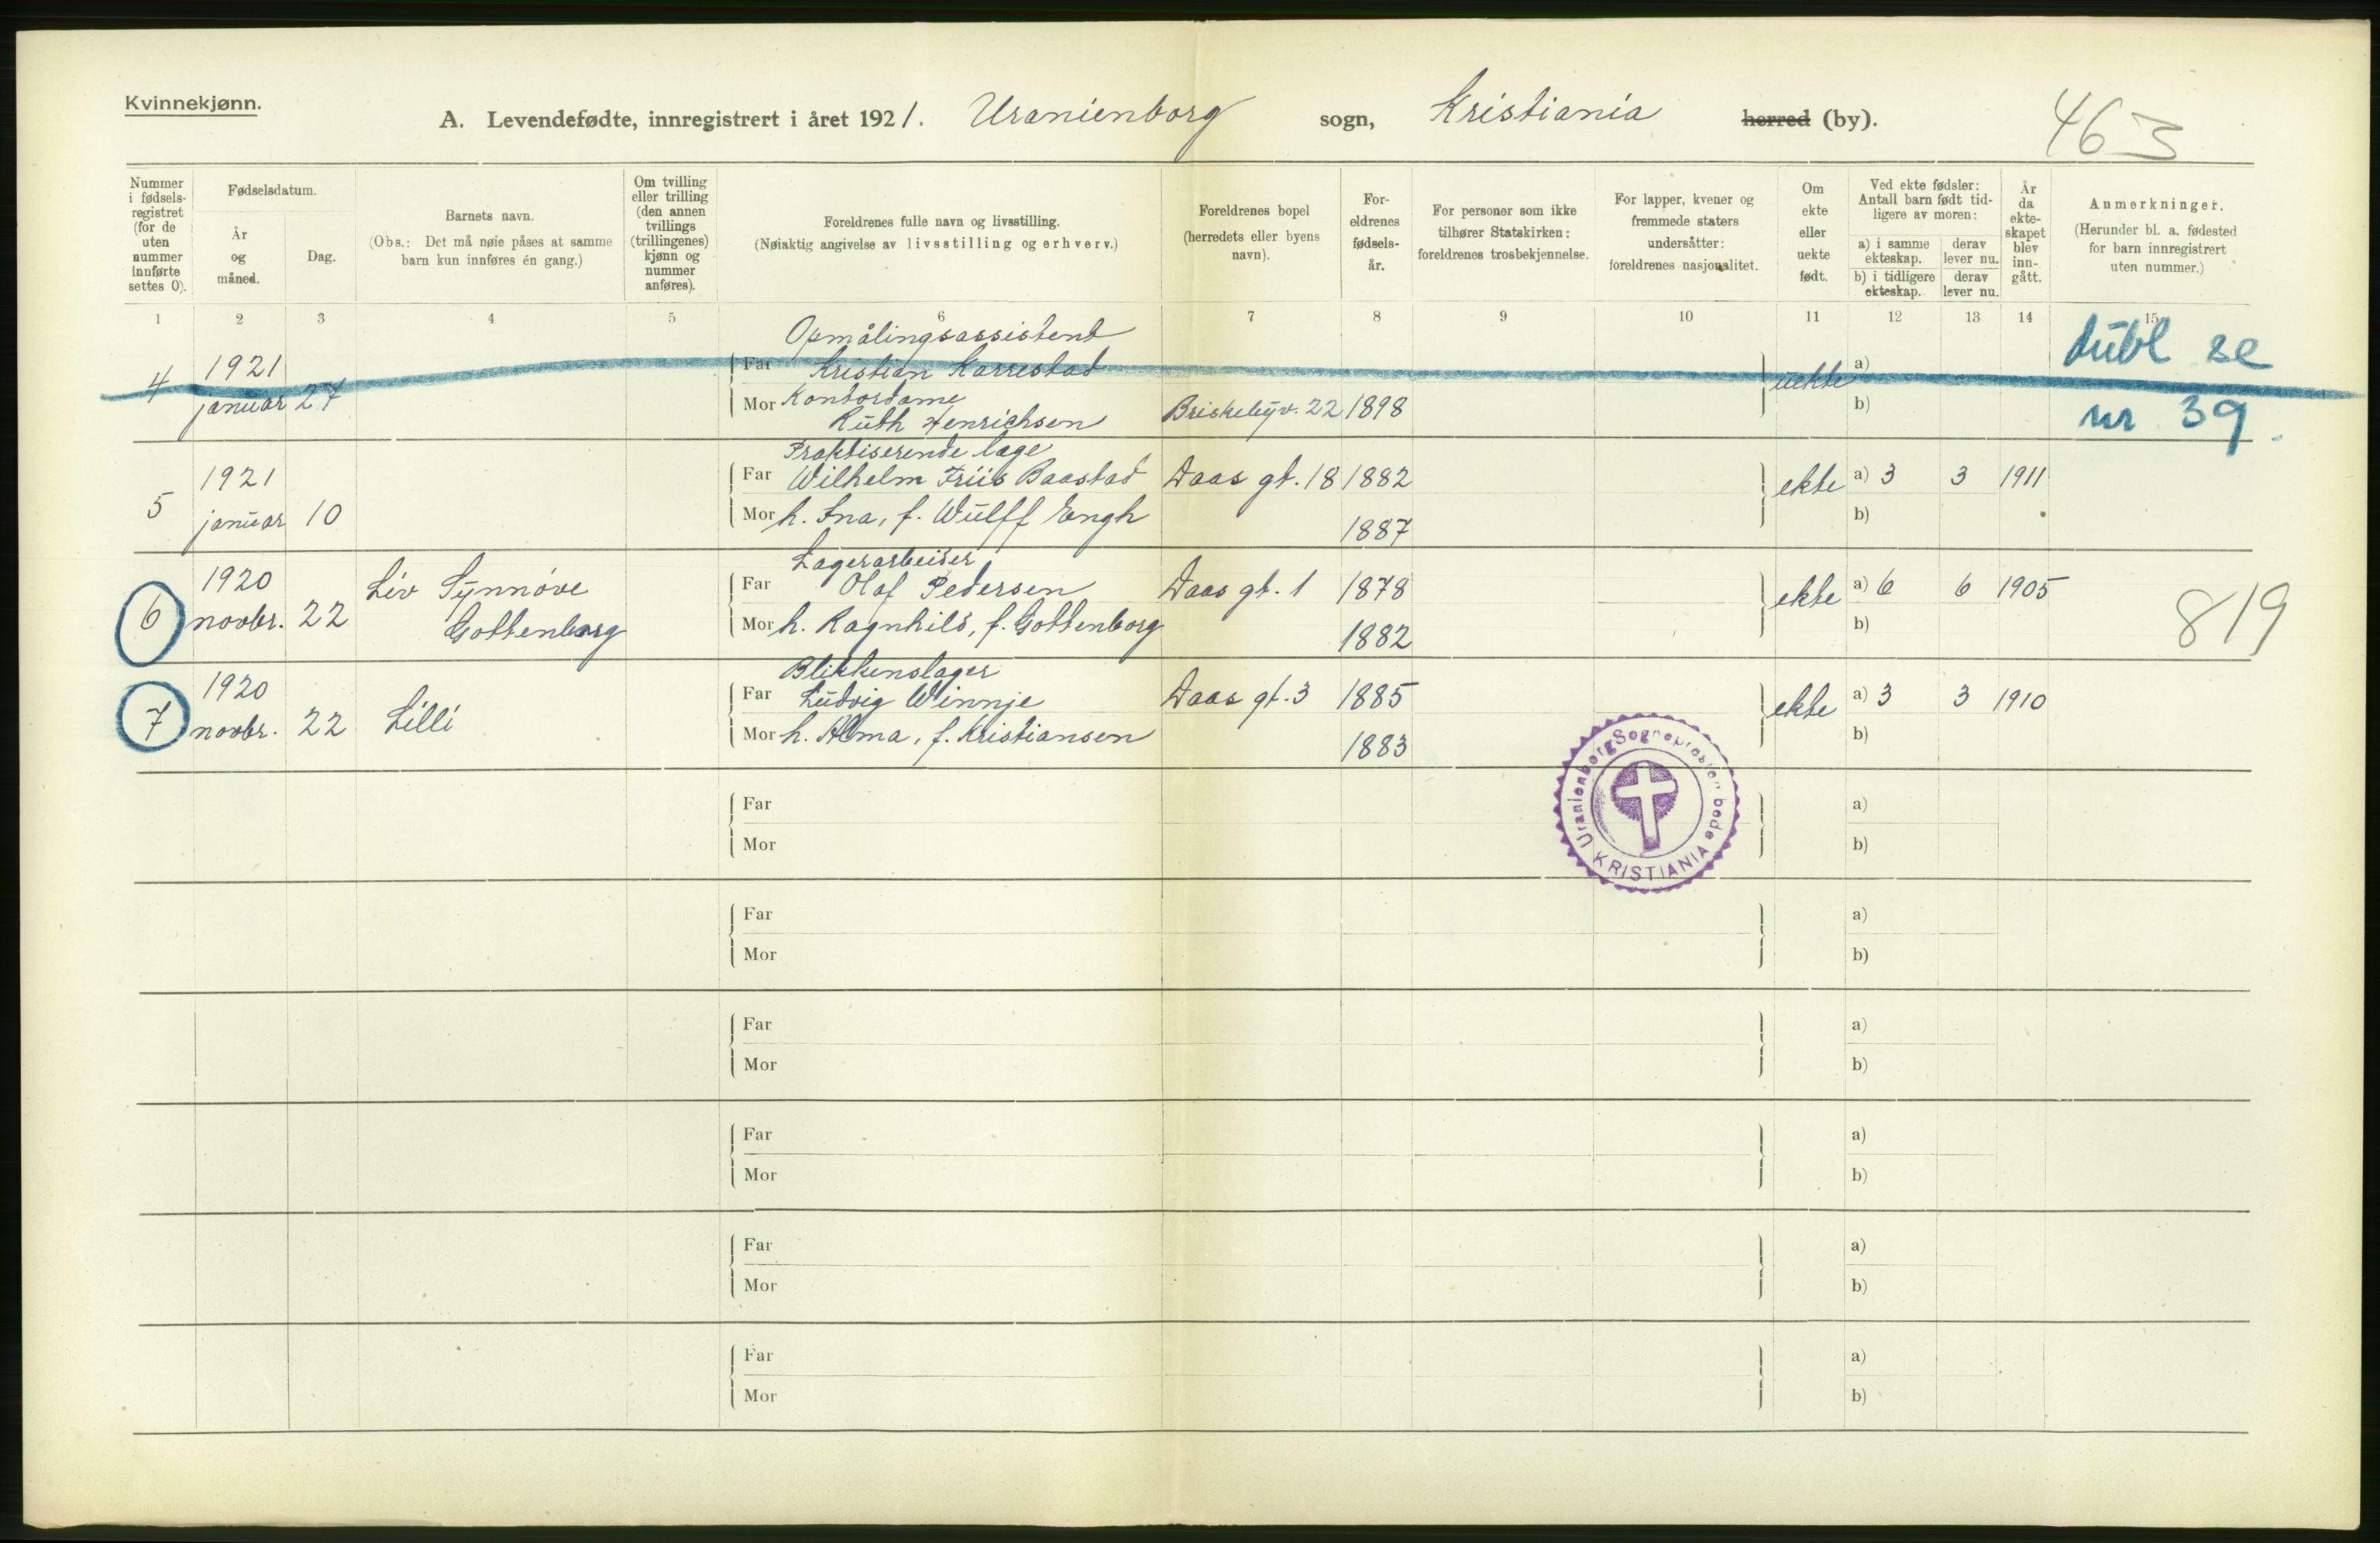 Kvinnekjønn.
A. Levendefødte, innregistrert i året 1921. Uranienborg sogn, Kristiania herred (by).
463
Nummer i fødsels-registret (for de uten nummer innførte settes 0).
Fødselsdatum.
År og måned.
Dag.
Barnets navn.
(Obs.: Det må nøie påses at samme barn kun innføres én gang.)
Om tvilling eller trilling (den annen tvillings (trillingenes) kjønn og nummer anføres).
Foreldrenes fulle navn og livsstilling.
(Nøiaktig angivelse av livsstilling og erhverv.)
Foreldrenes bopel (herredets eller byens navn).
For-eldrenes fødsels-år.
For personer som ikke tilhører Statskirken: foreldrenes trosbekjennelse.
For lapper, kvener og fremmede staters undersåtter: foreldrenes nasjonalitet.
Om ekte eller uekte født.
Ved ekte fødsler: Antall barn født tid-ligere av moren:
a) i samme ekteskap. derav lever nu.
b) i tidligere ekteskap. derav lever nu.
År da ekte-skapet blev inn-gått.
Anmerkninger.
(Herunder bl. a. fødested for barn innregistrert uten nummer.)
1 2 3 4 5 6 7 8 9 10 11 12 13 14 15
Opmålingsassistent
4 1921 Far Kristian Karrestad uekte a) dubl se
januar 27 Mor Kontordame
Ruth Henrichsen Briskebyv. 22 1898 b) nr 39.
Praktiserende læge
5 1921 Far Wilhelm Friis Baastad Daas gt. 18 1882 ekte a) 3 3 1911
januar 10 Mor h. Ina, f. Wulff Engh 1887 b)
Lagerarbeider
6 1920 Liv Synnøve Far Olaf Pedersen Daas gt. 1 1878 ekte a) 6 6 1905
novbr. 22 Gottenborg Mor h. Ragnhild, f. Gottenborg 1882 b) 819
Blikkenslager
7 1920 Far Ludvig Winnje Daas gt. 3 1885 ekte a) 3 3 1910
novbr. 22 Lilli Mor h. Alma, f. Kristiansen 1883 b)
Uranienborg Sogneprestembede KRISTIANIA
Far a)
Mor b)
Far a)
Mor b)
Far a)
Mor b)
Far a)
Mor b)
Far a)
Mor b)
Far a)
Mor b)